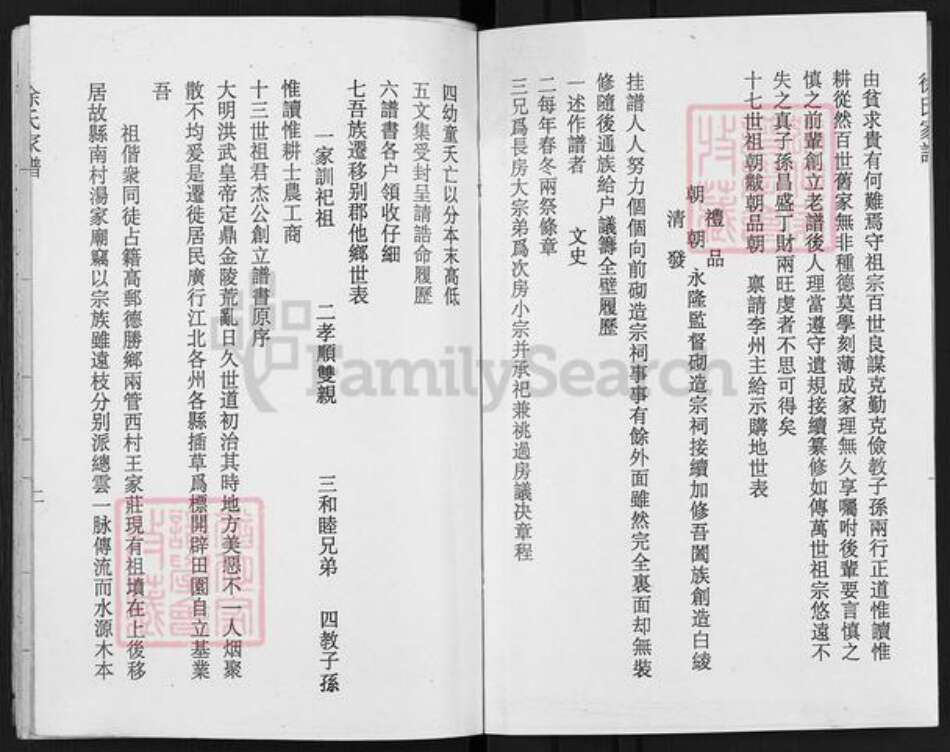 徐氏家譜
由貧求貴有何難焉守祖宗百世良謀克勤克儉教子孫兩行正道惟讀惟
耕從然百世舊家無非種德莫學刻薄成家理無久享囑咐後輩要言慎之
慎之前輩創立老譜後人理當遵守遺規接續纂修如傳萬世祖宗悠遠不
失之真子孫昌盛丁財兩旺虔者不思可得矣
十七世祖朝黻朝品朝 禀請李州主給示購地世表
禮品
朝 朝 永隆監督砌造宗祠接續加修吾闔族創造白綾
清發
挂譜人人努力個個向前砌造宗祠事事有餘外面雖然完全裏面却無裝
修隨後通族給户議籌全壁履歷
一述作譜者 文史
二每年春冬兩祭條章
三兄爲長房大宗弟爲次房小宗并承祀兼祧過房議决章程
四幼童夭亡以分本末高低
五文集受封呈請誥命履歷
六譜書各户領收仔細
七吾族遷移别郡他鄉世表
一家訓祀祖 二孝順雙親 三和睦兄弟 四教子孫
惟讀惟耕士農工商
十三世祖君杰公創立譜書原序
大明洪武皇帝定鼎金陵荒亂日久世道初治其時地方美惡不一人烟聚
散不均爰是遷徙居民廣行江北各州各縣插草爲標開辟田園自立基業
吾
祖偕衆同徒占籍高郵德勝鄉兩管西村王家莊現有祖墳在上後移
居故縣南村湯家廟竊以宗族雖遠枝分别派總雲一脉傳流而水源木本
徐氏家譜
二
FamilySearch